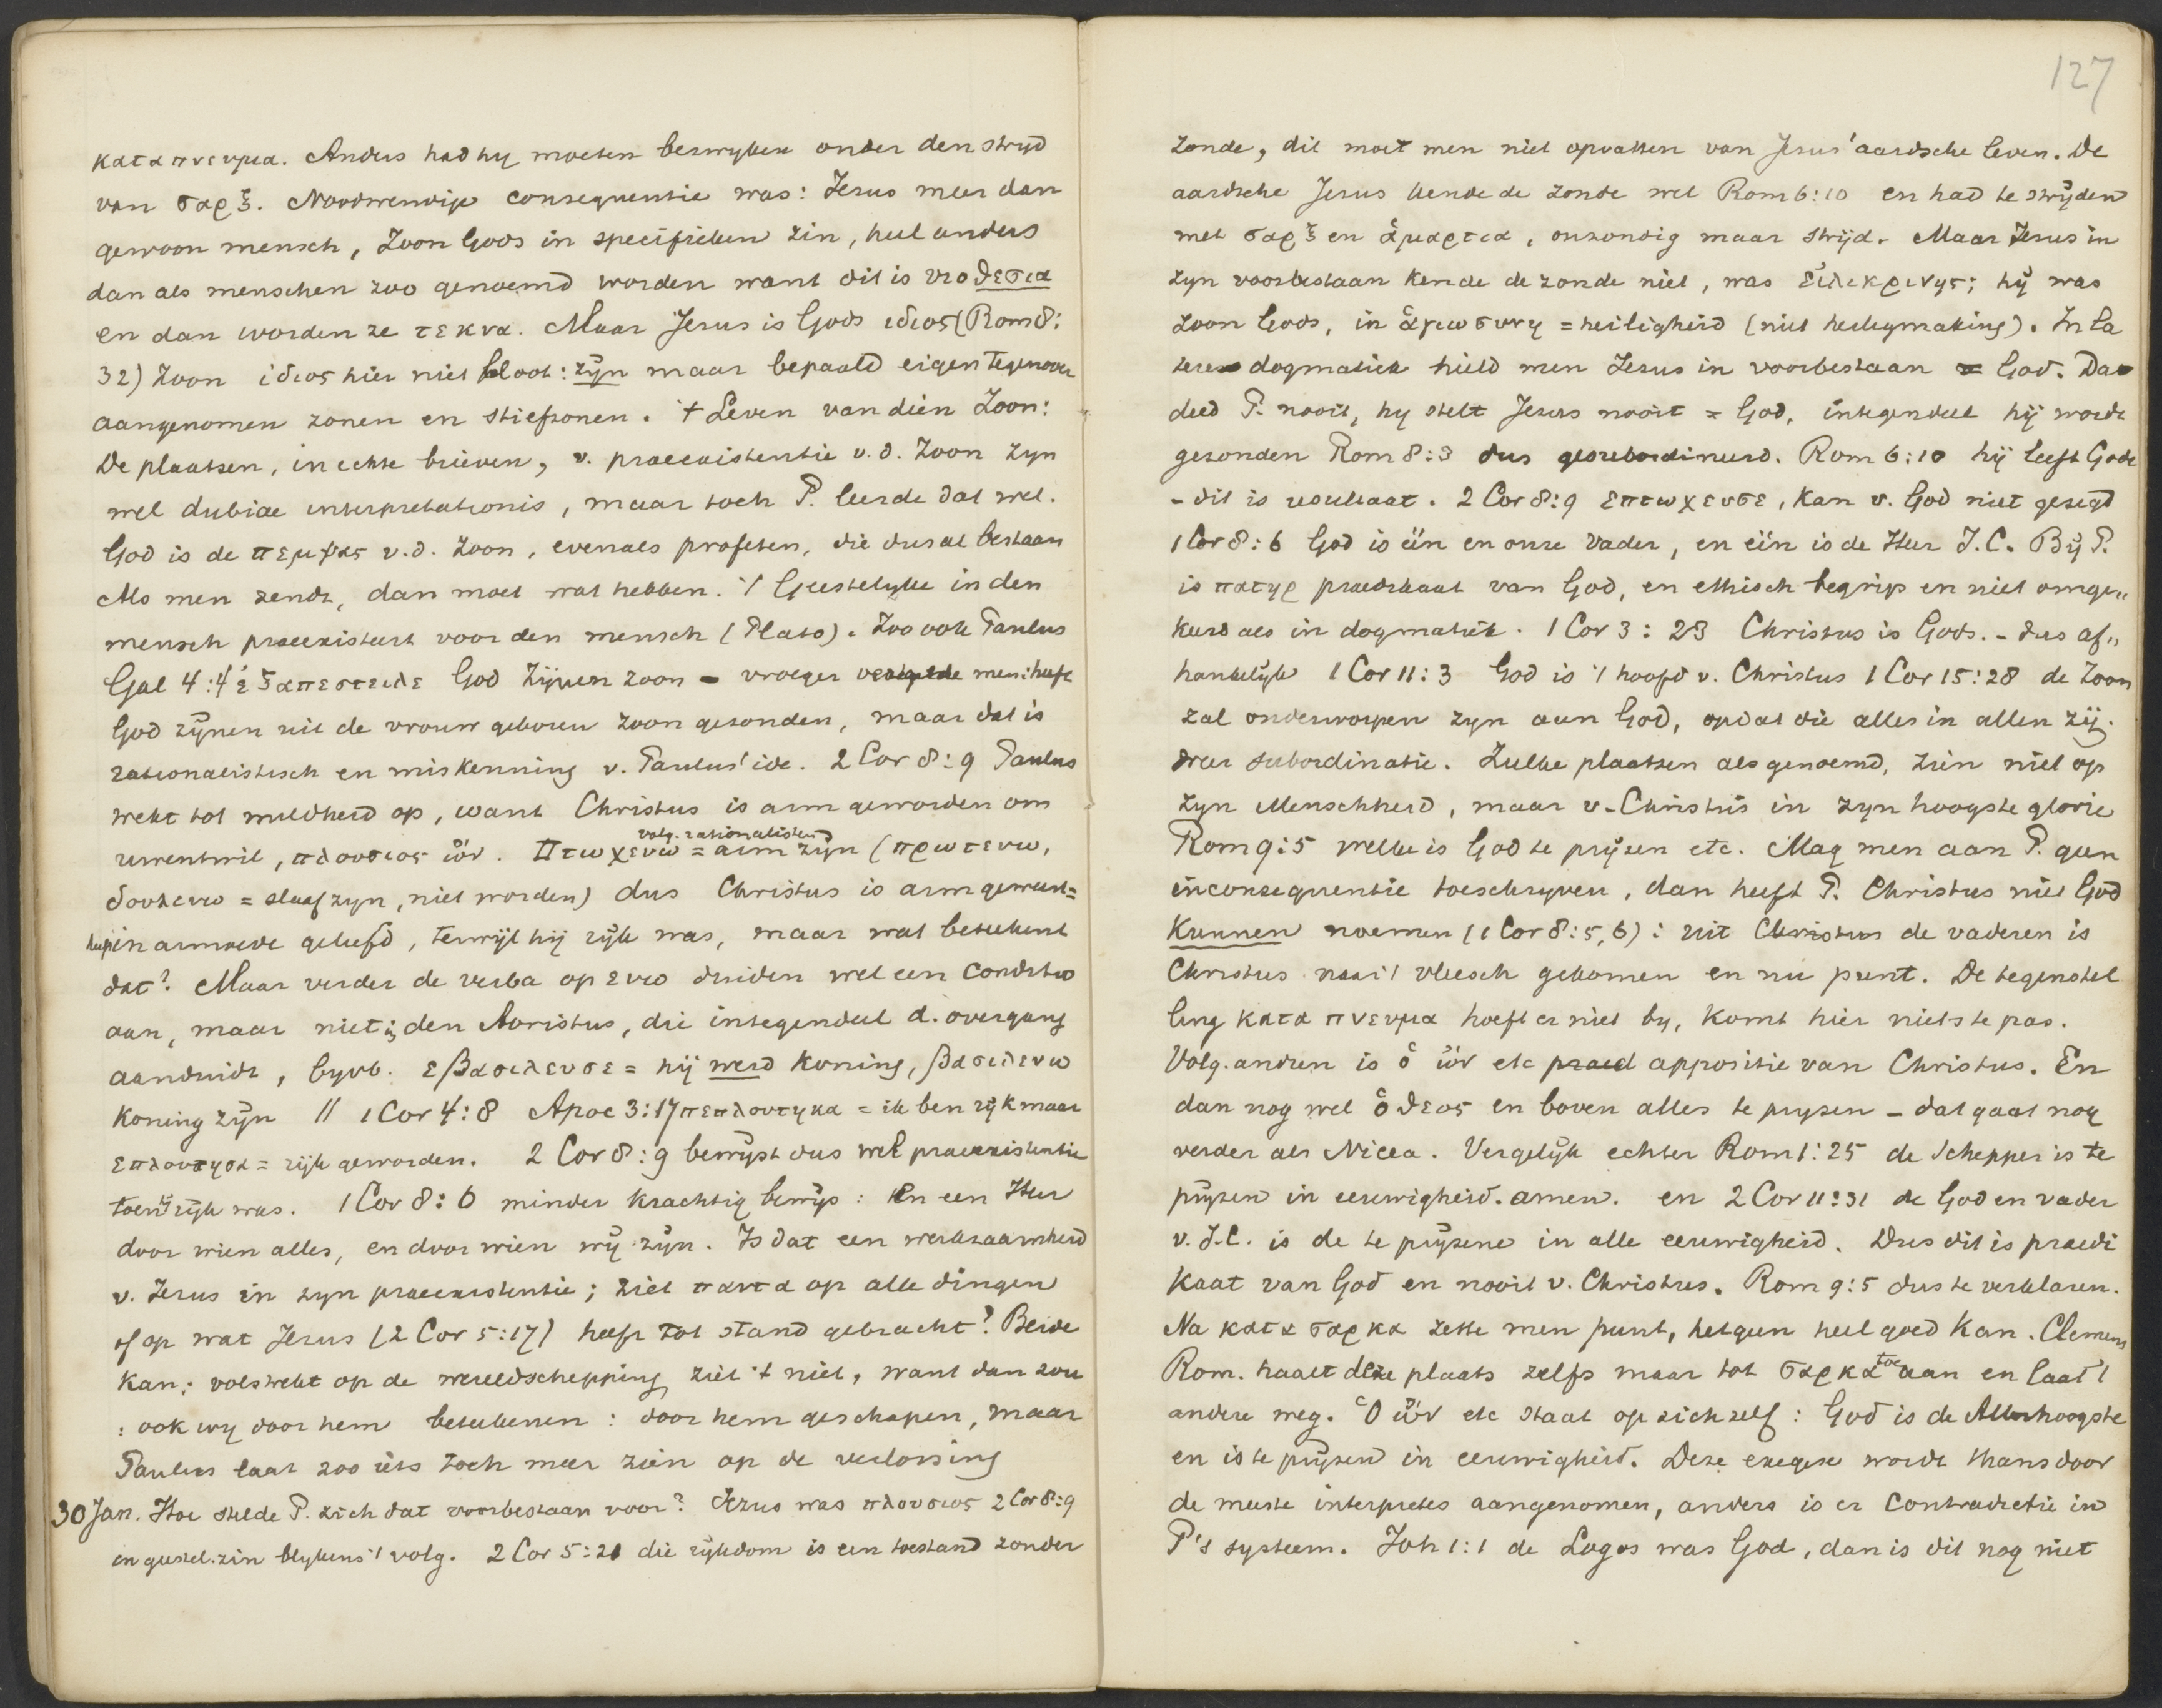 κατα πνευμα. Anders had hy moeten bezwyken onder den stryd
van σαρξ. Noodwendige consequentie was: Jezus meer dan
gewoon mensch, Zoon Gods in specifieken zin, heel anders
dan als menschen zoo genoemd worden want dit is υιοθεσια
en dan worden ze τεκνα. Maar Jesus is Gods ιδιος (Rom 8:
32) Zoon ιδιος hier niet bloot: zyn maar bepaald eigen tegenover
aangenomen zonen en stiefzonen. 't Leven van dien Zoon:
De plaatsen, in echte brieven, v. praeexistentie v.d. Zoon zyn
wel dubiae interpretationis, maar toch P. leerde dat wel.
God is de πεμψας v.d. Zoon, evenals profeten, die dus al bestaan
Als men zendt, dan moet wat hebben. 't Geestelyke in den
mensch praeexisteert voor den mensch (Plato). Zoo ook Paulus
Gal 4:4 ἐξαπεστειλε God Zijnen zoon – vroeger men: heeft
God zÿnen uit de vrouw geboren zoon gezonden, maar dat is
rationalistisch en miskenning v. Paulus' idee. 2 Cor 8:9 Paulus
wekt tot mildheid op, want Christus is arm geworden om
uwentwil, πλουσιος ὤν. Πτωχευω = arm zÿn (πρωτευω,
volg. rationalisten
δουλευω = slaaf zyn, niet worden) dus Christus is arm geweest=
heeft in armoede geleefd, terwijl hij rijk was, maar wat beteekent
dat? Maar verder de verba op ευω duiden wel een conditio
aan, maar niet in den Aoristus, die integendeel d. overgang
aanduidt, byvb. εβασιλευσε = hij werd koning, βασιλευω
koning zÿn // 1 Cor 4:8 Apoc 3:17 πεπλουτηκα = ik ben rÿk maar
επλουτησα = rijk geworden. 2 Cor 8:9 bewÿst dus wel praeexistentie
toen hij rijk was. 1 Cor 8:6 minder krachtig bewijs: en een Heer
door wien alles, en door wien wÿ zÿn. Is dat een werkzaamheid
v. Jezus in zyn praeexistentie; ziet παντα op alle dingen
of op wat Jezus (2 Cor 5:17) heeft tot stand gebracht? Beide
kan; volstrekt op de wereldschepping ziet 't niet, want dan zou
: ook wy door hem beteekenen: door hem geschapen, maar
Paulus laat zoo iets toch meer zien op de verlossing
30 Jan. Hoe stelde P. zich dat voorbestaan voor? Jezus was πλουσιος 2 Cor 8:9
in geestel. zin blykens 't volg. 2 Cor 5:21 die rijkdom is een toestand zonder
127
zonde, dit moet men niet opvatten van Jesus' aardsche leven. De
aardsche Jesus kende de zonde wel Rom 6:10 en had te strijden
met σαρξ en ἁμαρτια, onzondig maar strijd. Maar Jezus in
zyn voorbestaan kende de zonde niet, was εἰλικρινης; hÿ was
Zoon Gods, in ἁγιωσυνη = heiligheid (niet heiligmaking). In la
tere dogmatiek hield men Jezus in voorbestaan = God. Dat
deed P. nooit, hy stelt Jezus nooit = God, integendeel hij wordt
gezonden Rom 8:3 dus gesubordineerd. Rom 6:10 hij leeft Gode
– dit is resultaat. 2 Cor 8:9 επτωχευσε, kan v. God niet gezegd
1 Cor 8:6 God is één en onze Vader, en één is de Heer J.C. Bÿ P.
is πατηρ praedikaat van God, en ethisch begrip en niet omge„
keerd als in dogmatiek. 1 Cor 3:23 Christus is Gods. – dus af„
hankelijk 1 Cor 11:3 God is 't hoofd v. Christus 1 Cor 15:28 de Zoon
zal onderworpen zyn aan God, opdat die alles in allen zij.
dus subordinatie. Zulke plaatsen als genoemd, zien niet op
zyn Menschheid, maar v. Christus in zyn hoogste glorie
Rom 9:5 welke is God te prijzen etc. Mag men aan P. geen
inconsequentie toeschryven, dan heeft P. Christus niet God
kunnen noemen (1 Cor 8:5,6): uit Christus de vaderen is
Christus naar 't vleesch gekomen en nu punt. De tegenstel
ling κατα πνευμα hoeft er niet by, komt hier niet te pas.
Volg. andren is ὁ ὤν etc praed appositie van Christus. En
dan nog wel ὁ θεος en boven alles te pryzen – dat gaat nog
verder als Nicea. Vergelijk echter Rom 1:25 de Schepper is te
prijzen in eeuwigheid. amen. en 2 Cor 11:31 de God en vader
v. J.C. is de te prÿzene in alle eeuwigheid. Dus dit is praedi
kaat van God en nooit v. Christus. Rom 9:5 dus te verklaren.
Na κατα σαρκα zette men punt, hetgeen heel goed kan. Clemens
Rom. haalt deze plaats zelfs maar tot σαρκα toe aan en laat 't
andere weg. Ὁ ὤν etc staat op zich zelf: God is de Allerhoogste
en is te prÿzen in eeuwigheid. Deze exegese wordt thans door
de meeste interpretes aangenomen, anders is er contradictie in
P's systeem. Joh 1:1 de Logos was God, dan is dit nog niet